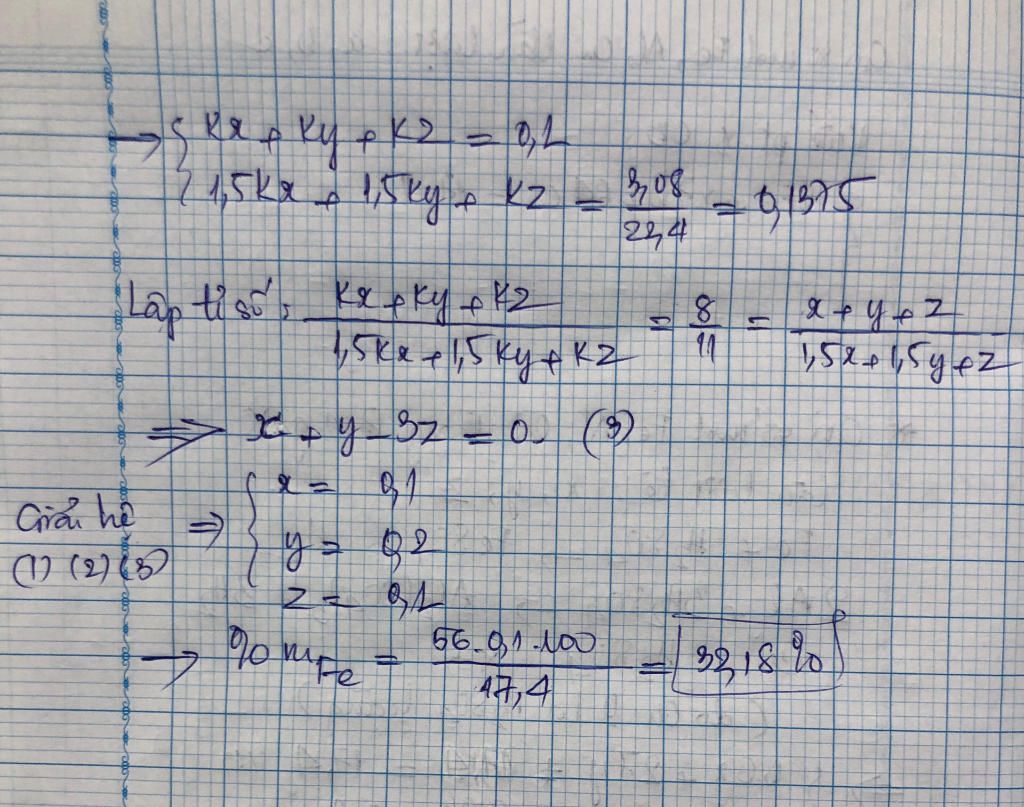 → { kx + ky + kz = 0,1
1,5kx + 1,5ky + kz = 3,08/22,4 = 0,1375
Lập tỉ số: (kx + ky + kz)/(1,5kx + 1,5ky + kz) = 8/11 = (x + y + z)/(1,5x + 1,5y + z)
⇒ x + y - 3z = 0. (3)
Giải hệ (1) (2) (3) ⇒ { x = 0,1
y = 0,2
z = 0,1
→ % mFe = 56.0,1.100/17,4 = 32,18 %